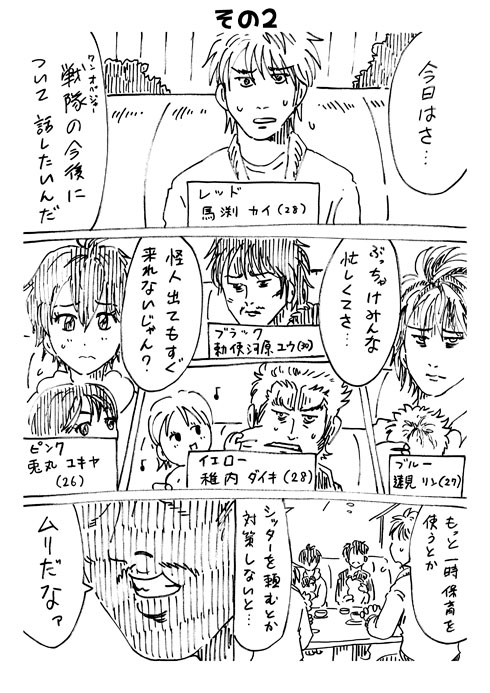 その2
今日はさ…
ワンオペジャー
戦隊の今後に
ついて話したいんだ
レッド
馬渕 カイ(28)
ぶっちゃけみんな
忙しくてさ…
怪人出てもすぐ
来れないじゃん?
ブラック
勅使河原ユウ(30)
ブルー
遠見 リン(27)
イエロー
稚内 ダイキ(28)
ピンク
兎丸 ユキヤ
(26)
もっと一時保育を
使うとか
シッターを頼むとか
対策しないと…
ムリだなァ